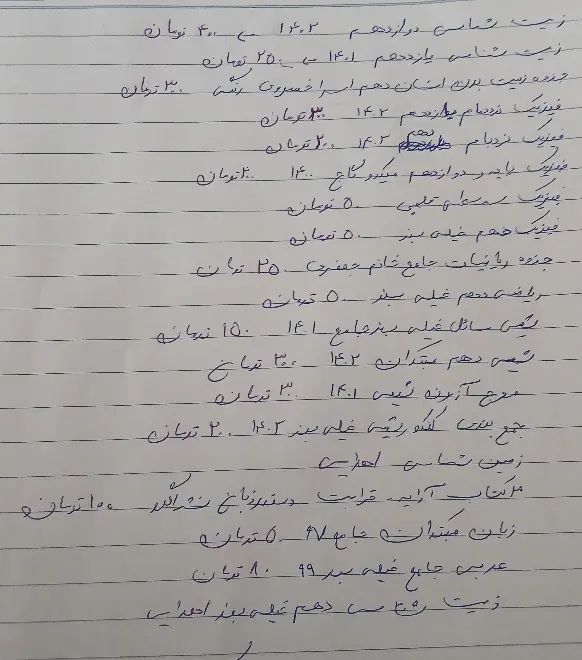 زیست شناسی دوازدهم ۱۴۰۲ ← ۴۰۰ تومان
زیست شناسی یازدهم ۱۴۰۱ ← ۲۵۰ تومان
جزوه زیست بدن انسان دهم ۳۰۰ تومان
فیزیک نردبام یازدهم ۱۴۰۲ ۳۰۰ تومان
فیزیک نردبام دهم ۱۴۰۲ ۲۰۰ تومان
فیزیک پایه و دوازدهم میکرو گاج ۱۴۰۰ ۲۰۰ تومان
فیزیک سه سطحی قلمچی ۵۰ تومان
فیزیک دهم خیلی سبز ۵۰ تومان
جزوه ریاضیات جامع خانم جعفری ۲۵۰ تومان
ریاضی دهم خیلی سبز ۵۰ تومان
شیمی مسائل خیلی سبز جامع ۱۴۰۱ ۱۵۰ تومان
شیمی دهم مبتکران ۱۴۰۲ ۳۰۰ تومان
موج آزمون شیمی ۱۴۰۱ ۳۰۰ تومان
جمع بندی کنکور شیمی خیلی سبز ۱۴۰۲ ۲۰۰ تومان
زمین شناسی اهدایی
۳ کتاب آرایه قرابت دستور زبان نشر الگو ۱۰۰ تومان
زبان مبتکران جامع ۹۷ ۵۰ تومان
عربی جامع خیلی سبز ۹۹ ۸۰ تومان
زیست شناسی دهم خیلی سبز اهدایی